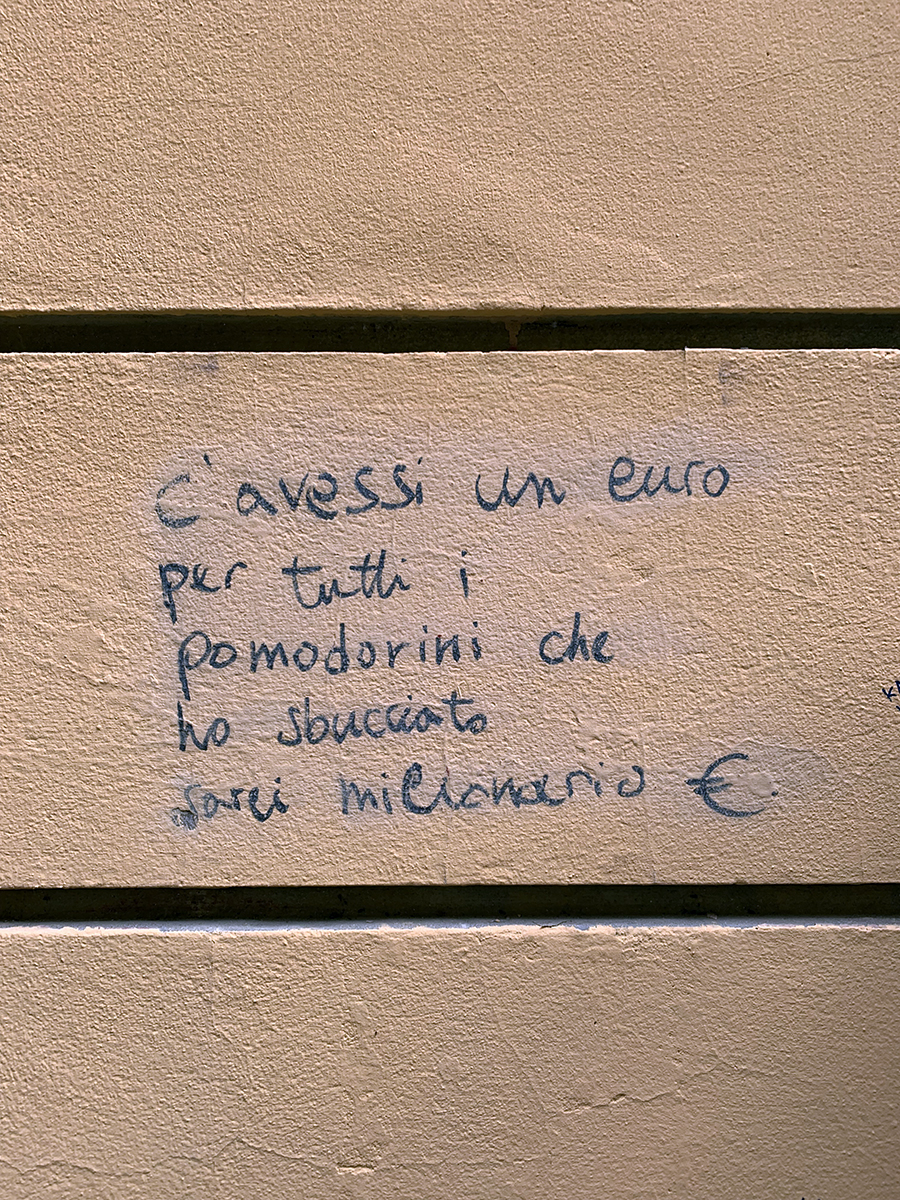 c'avessi un euro
per tutti i
pomodorini che
ho sbucciato
sarei millonario €.